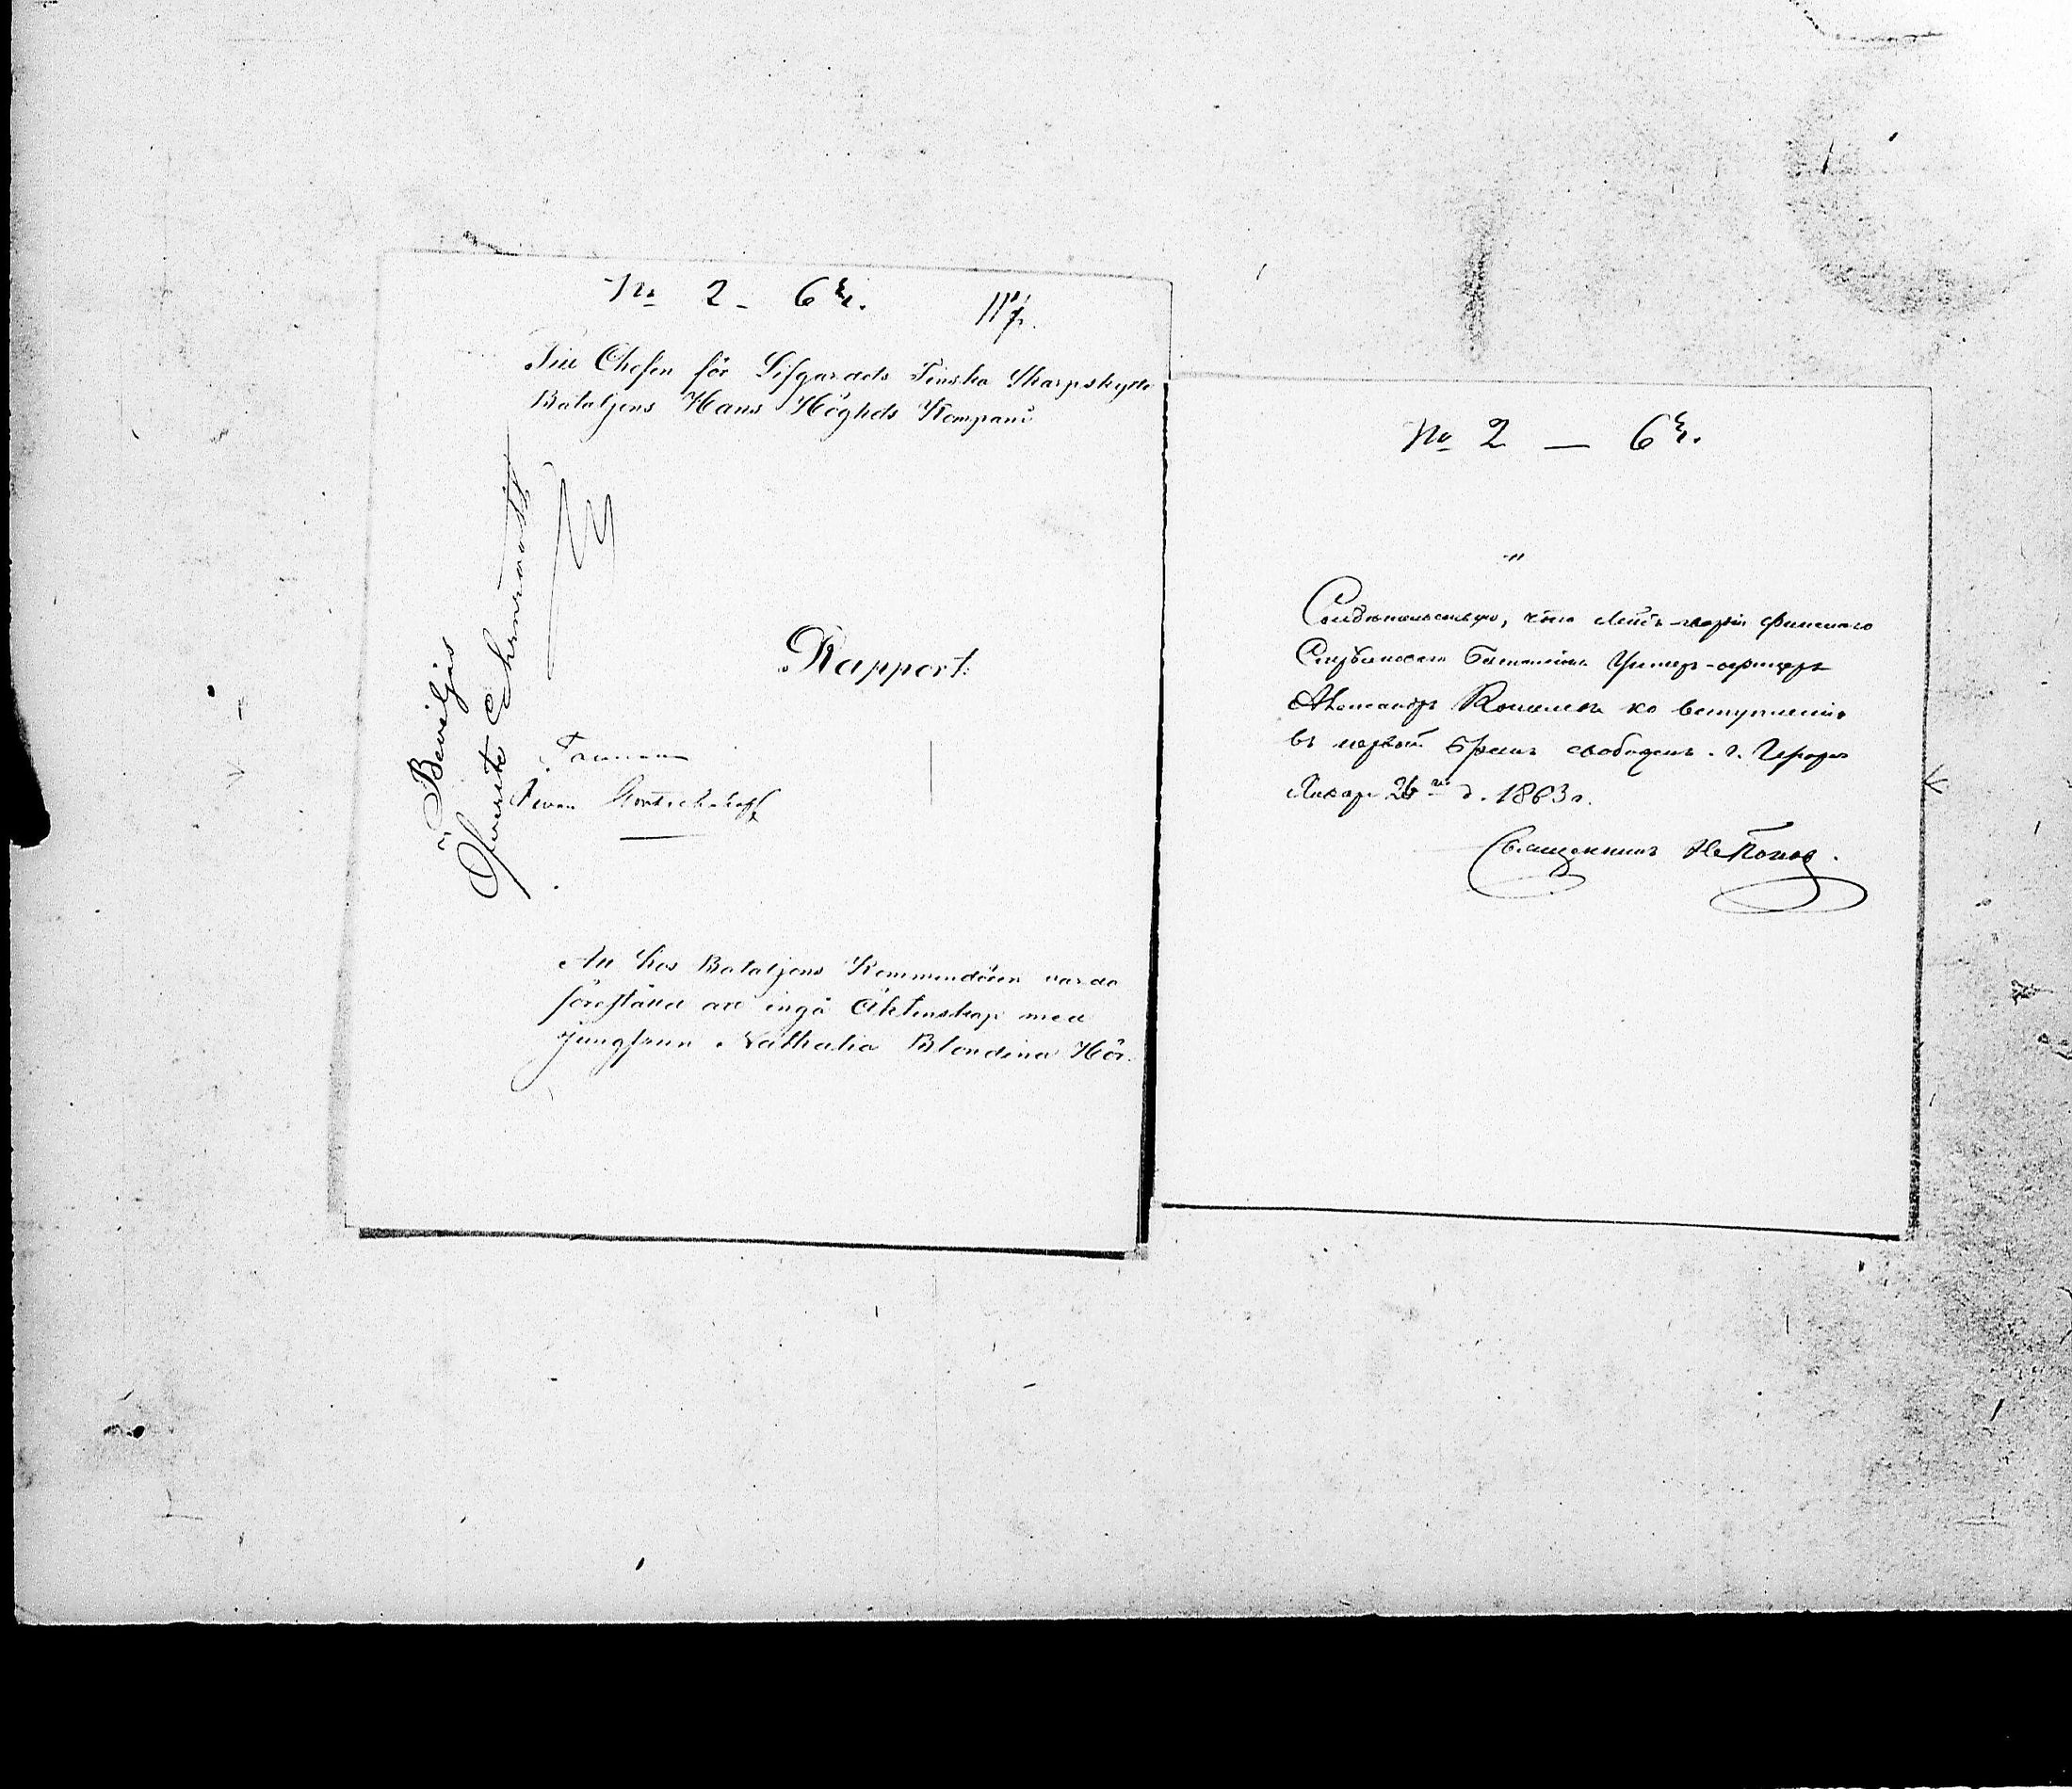 No 2 - 63.
Till Chefen för Lifgardets Finska Skarpskytte
Bataljons Hans Höghets Kompani
Beviljas
Öfverste
Rapport.
Iwan
Att hos Bataljons Kommendören varda
föreställd att ingå Äktenskap med
jungfrun Nathalia Blondina Hör.
No 2 — 63.
Свидѣтельствую, что Лейбъ-гвардіи Финскаго
Стрѣлковаго Баталіона Унтеръ-офицеръ
Александръ ко вступленію
въ первый бракъ свободенъ. г.
Январ 26 го д. 1863 г.
Священникъ Н. Попов.